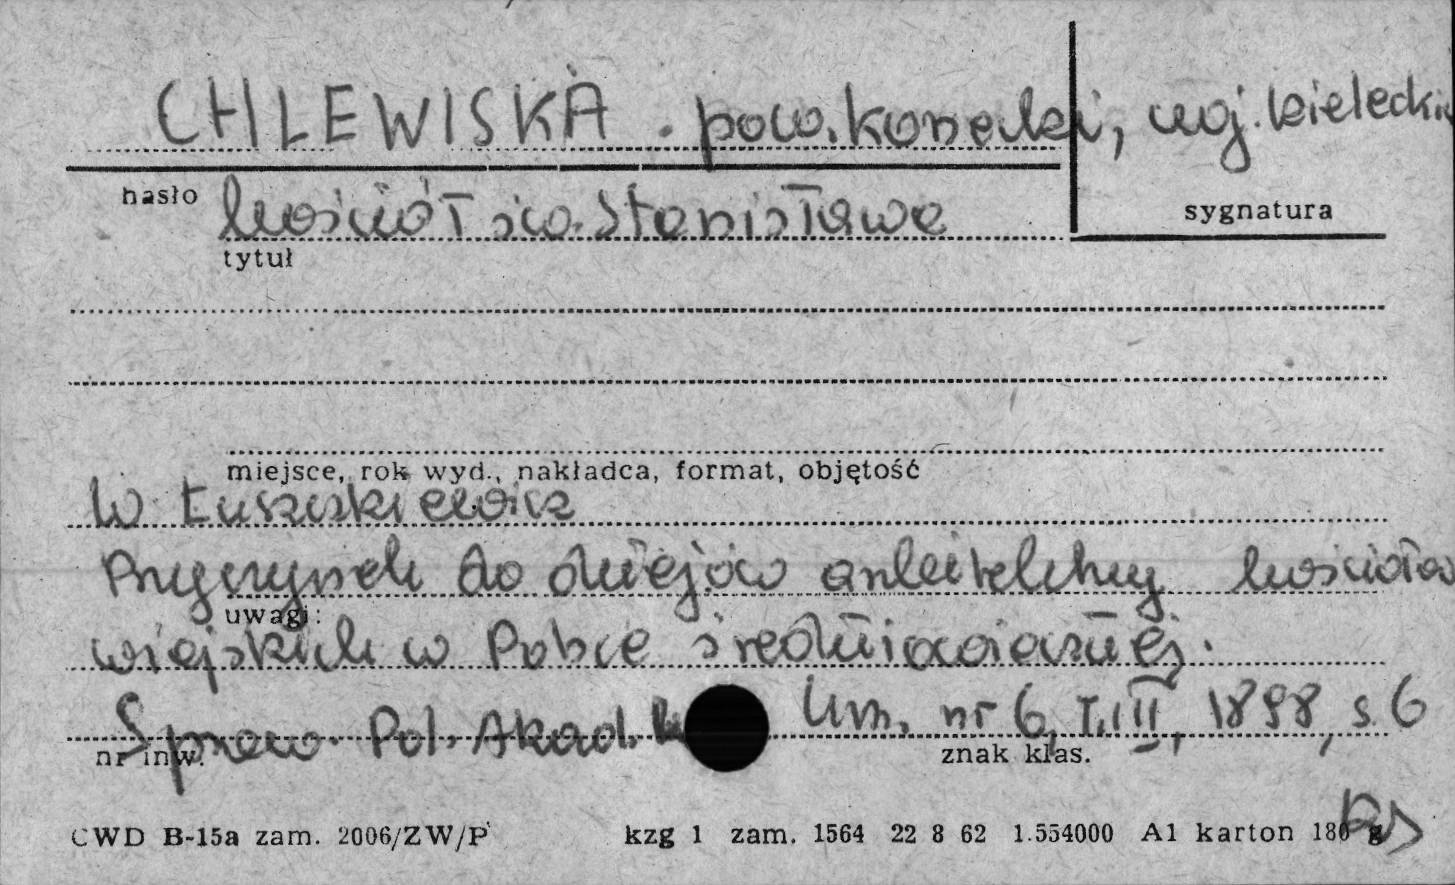 CHLEWISKA. pow. konecki, woj. kieleckie
hasło
sygnatura
kościół św. Stanisława
tytuł
miejsce, rok wyd., nakładca, format, objętość
W Łuszczkiewicz
Przyczynek do dziejów architektury kościołów
uwagi:
wiejskich w Polsce średniowiecznej.
Spraw. Pol. Akad. Um. nr 6, T. III, 1898, s. 6
nr inw.
znak klas.
CWD B-15a zam. 2006/ZW/P
kzg 1 zam. 1564 22 8 62 1.554000 A1 karton 180 g